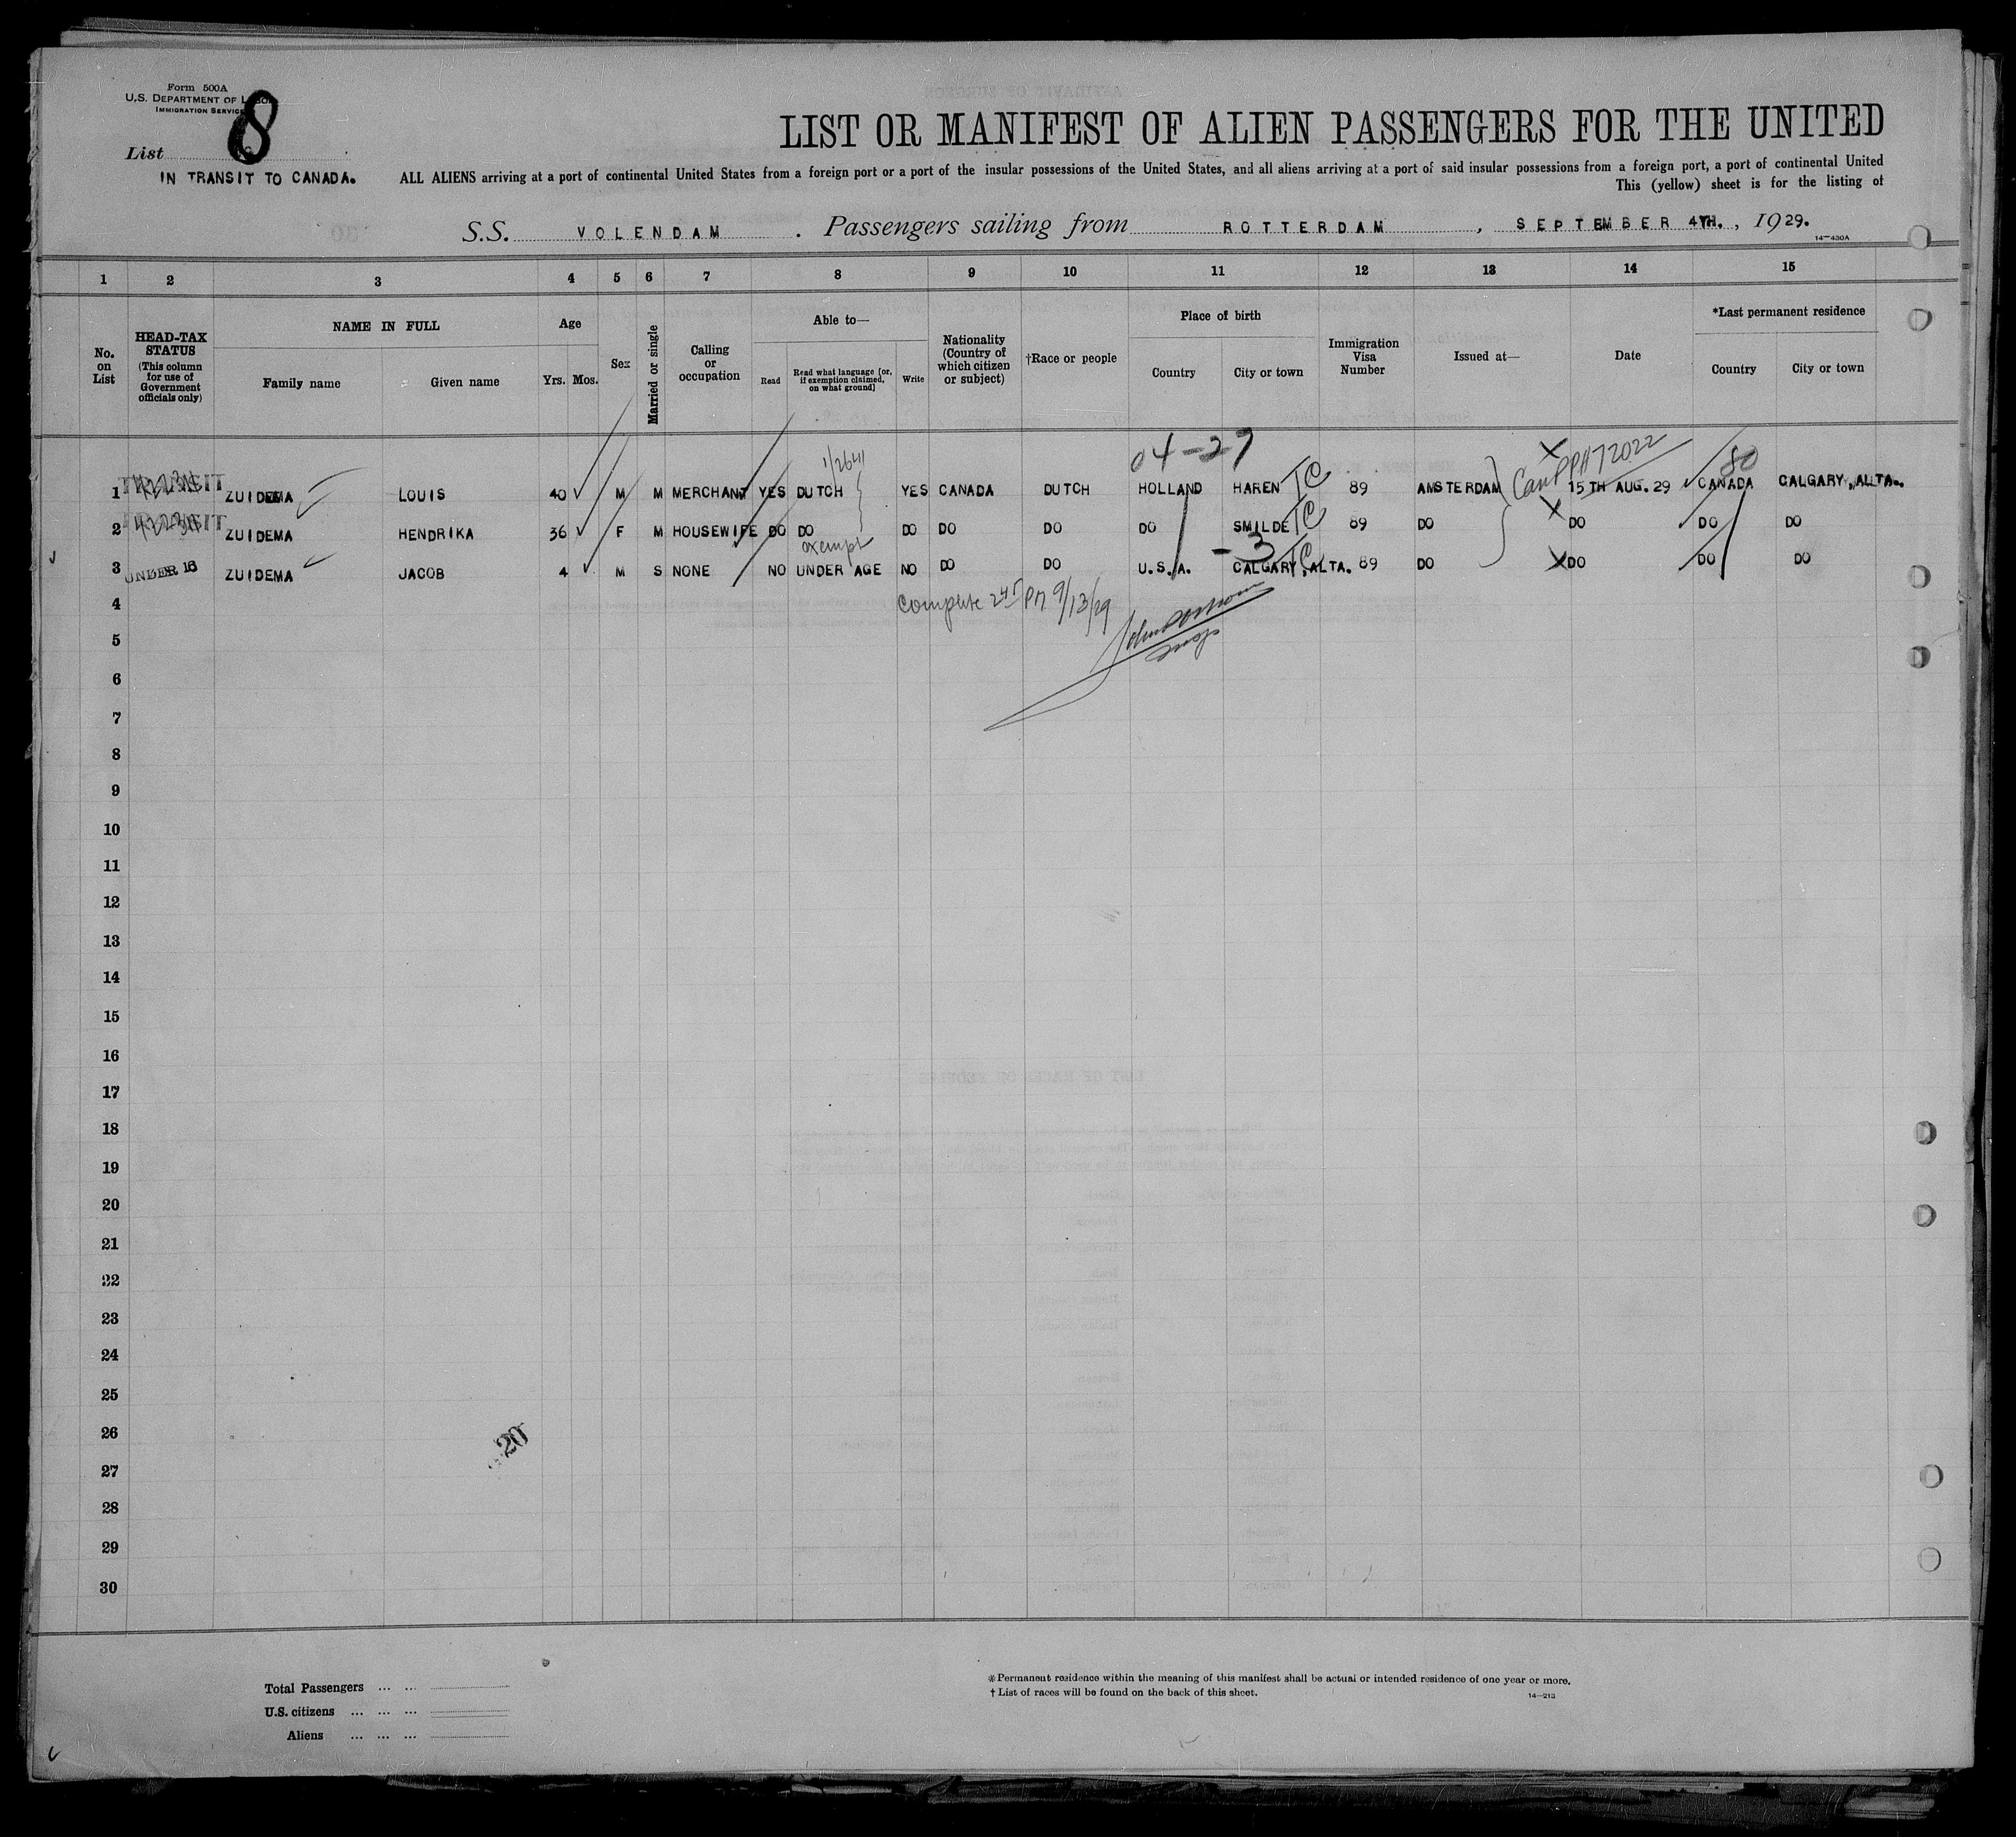 Form 500A
U.S. DEPARTMENT OF LABOR
IMMIGRATION SERVICE
8
List
IN TRANSIT TO CANADA.
LIST OR MANIFEST OF ALIEN PASSENGERS FOR THE UNITED
ALL ALIENS arriving at a port of continental United States from a foreign port or a port of the insular possessions of the United States, and all aliens arriving at a port of said insular possessions from a foreign port, a port of continental United
This (yellow) sheet is for the listing of
S.S. VOLENDAM . Passengers sailing from ROTTERDAM , SEPTEMBER 4TH. , 1929.
14—430A
1 2 3 4 5 6 7 8 9 10 11 12 13 14 15
No. on List
HEAD-TAX STATUS (This column for use of Government officials only)
NAME IN FULL
Family name Given name
Age
Yrs. Mos.
Sex
Married or single
Calling or occupation
Able to—
Read
Read what language [or, if exemption claimed, on what ground]
Write
Nationality (Country of which citizen or subject)
†Race or people
Place of birth
Country City or town
Immigration Visa Number
Issued at—
Date
*Last permanent residence
Country City or town
04-27
Can PP#72022
80
1 TRANSIT ZUIDEMA LOUIS 40 M M MERCHANT YES DUTCH YES CANADA DUTCH HOLLAND HAREN TC 89 AMSTERDAM 15TH AUG. 29 CANADA CALGARY, ALTA.
2 TRANSIT ZUIDEMA HENDRIKA 36 F M HOUSEWIFE DO DO DO DO DO DO SMILDE TC 89 DO DO DO DO
exempt
-3
3 UNDER 16 ZUIDEMA JACOB 4 M S NONE NO UNDER AGE NO DO DO U.S.A. CALGARY, ALTA. TC 89 DO DO DO DO
4 Complete 245 PM 9/13/29
5
6
7
8
9
10
11
12
13
14
15
16
17
18
19
20
21
22
23
24
25
26
20
27
28
29
30
Total Passengers ... ...
U.S. citizens ... ... ...
Aliens ... ... ...
*Permanent residence within the meaning of this manifest shall be actual or intended residence of one year or more.
†List of races will be found on the back of this sheet.
14—213